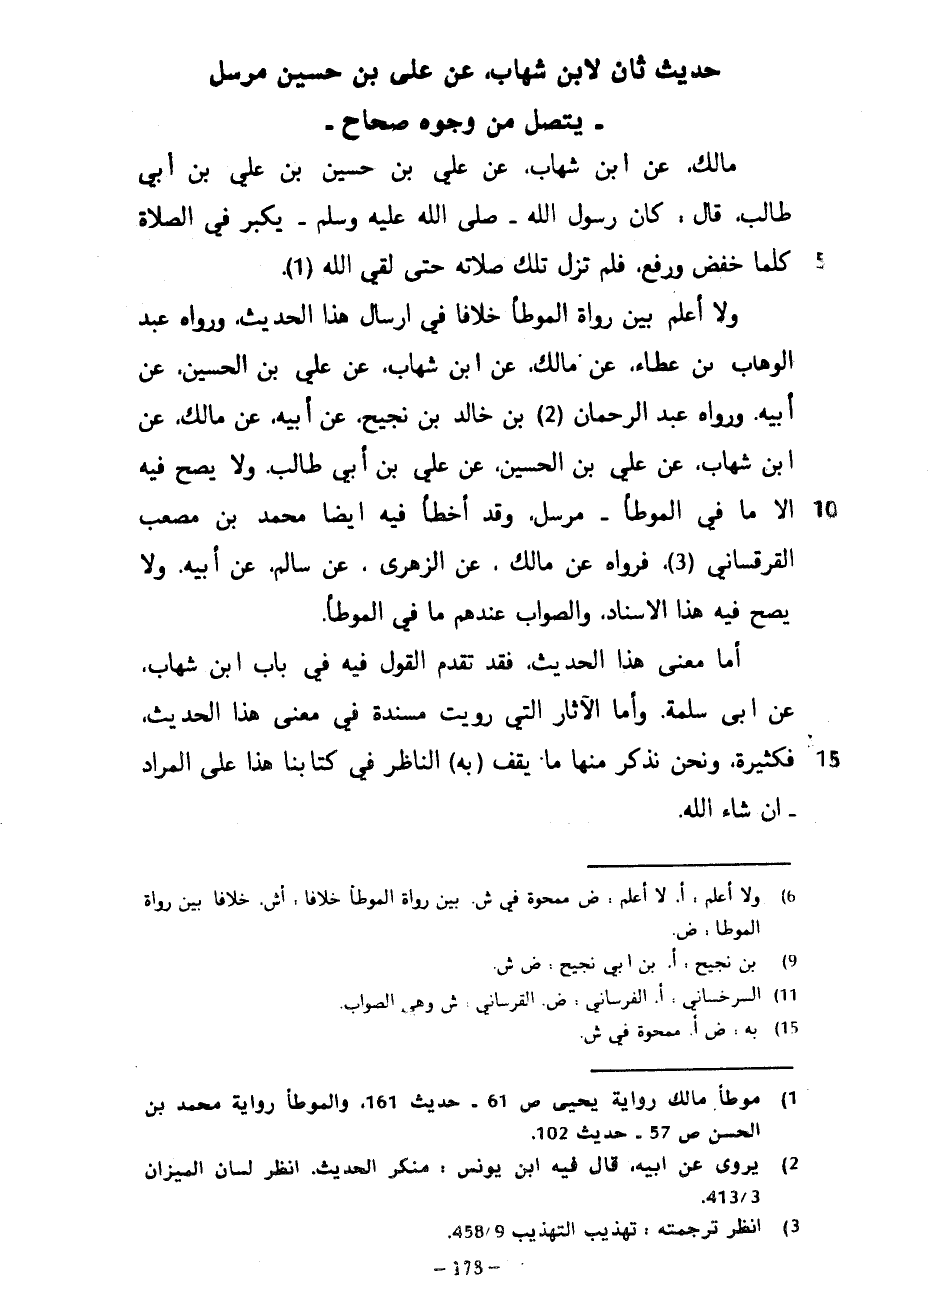 حديث ثان لابن شهاب، عن على بن حسين مرسل
ـ يتصل من وجوه صحاح ـ
مالك، عن ابن شهاب، عن علي بن حسين بن علي بن أبي
طالب، قال : كان رسول الله ـ صلى الله عليه وسلم ـ يكبر في الصلاة
5 كلما خفض ورفع، فلم تزل تلك صلاته حتى لقي الله (1).
ولا أعلم بين رواة الموطأ خلافا في ارسال هذا الحديث، ورواه عبد
الوهاب بن عطاء، عن مالك، عن ابن شهاب، عن علي بن الحسين، عن
أبيه. ورواه عبد الرحمان (2) بن خالد بن نجيح، عن أبيه، عن مالك، عن
ابن شهاب، عن علي بن الحسين، عن علي بن أبي طالب. ولا يصح فيه
10 الا ما في الموطأ ـ مرسل، وقد أخطأ فيه ايضا محمد بن مصعب
القرقساني (3)، فرواه عن مالك ، عن الزهرى ، عن سالم، عن أبيه. ولا
يصح فيه هذا الاسناد، والصواب عندهم ما في الموطأ.
أما معنى هذا الحديث، فقد تقدم القول فيه في باب ابن شهاب،
عن ابى سلمة. وأما الآثار التي رويت مسندة في معنى هذا الحديث،
15 فكثيرة، ونحن نذكر منها ما يقف (به) الناظر في كتابنا هذا على المراد
ـ ان شاء الله.
6) ولا أعلم : أ. لا أعلم : ض ممحوة في ش. بين رواة الموطأ خلافا : أش. خلافا بين رواة
الموطا : ض.
9) بن نجيح : أ. بن ابي نجيح : ض ش.
11) السرخساني : أ. الفرساني : ض. القرساني : ش وهى الصواب.
15) به : ض أ. ممحوة في ش.
1) موطأ مالك رواية يحيى ص 61 ـ حديث 161، والموطأ رواية محمد بن
الحسن ص 57 ـ حديث 102.
2) يروى عن ابيه، قال فيه ابن يونس : منكر الحديث. انظر لسان الميزان
413/3.
3) انظر ترجمته : تهذيب التهذيب 458/9.
– 173 –